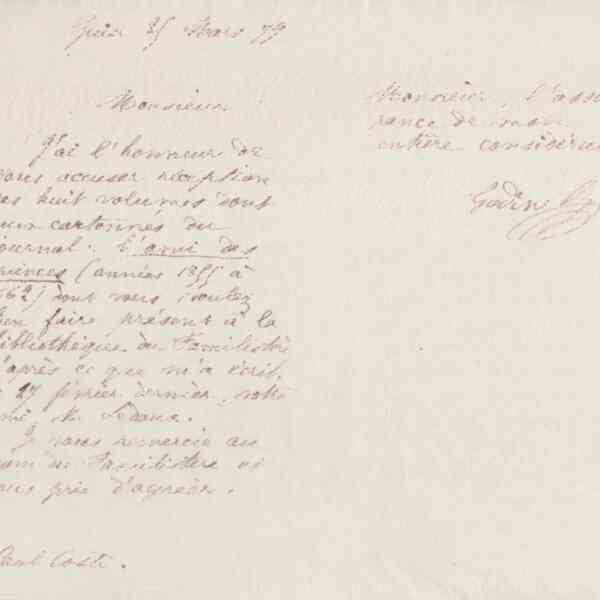 Guise 25 Mars 79
Monsieur
J'ai l'honneur de
vous accuser réception
des huit volumes dont
un cartonnés du
journal : L'ami des
sciences (années 1855 à
1862) dont vous voulez
bien faire présent à la
bibliothèque du Familistère
d'après ce que m'a écrit,
le 27 février dernier, votre
ami, M.
Je vous remercie au
nom du Familistère et
vous prie d'agréer,
Paul Coste.
Monsieur, l'assu
rance de mon
entière considération
Godin